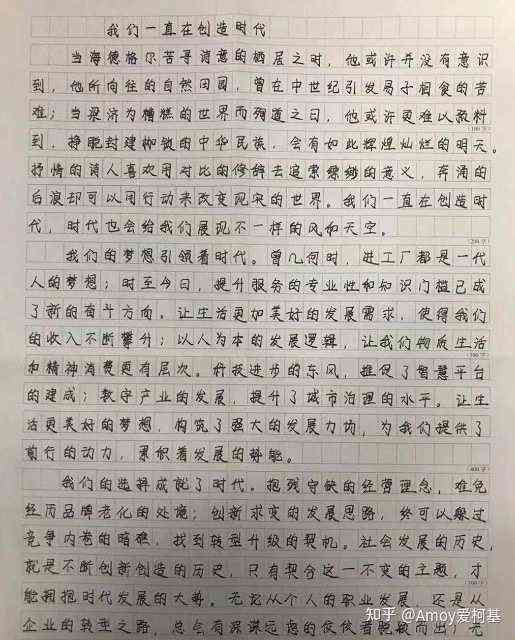 我们一直在创造时代
当海德格尔苦寻诗意的栖居之时，他或许并没有意识
到，他所向往的自然田园，曾在中世纪引发易子相食的苦
难；当梁济为糟糕的世界而殉道之日，他或许更难以预料
(100字)
到，挣脱封建枷锁的中华民族，会有如此辉煌灿烂的明天。
抒情的诗人喜欢用对比的修辞去追索缥缈的意义，奔涌的
后浪却可以用行动来改变现实的世界。我们一直在创造时
代，时代也会给我们展现不一样的风和天空。
(200字)
我们的梦想引领着时代。曾几何时，进工厂都是一代
人的梦想；时至今日，提升服务的专业性和知识门槛已成
了新的奋斗方向。让生活更加美好的发展需求，使得我们
的收入不断攀升；以人为本的发展逻辑，让我们物质生活
(300字)
和精神消费更有层次。科技进步的东风，推促了智慧平台
的建成；数字产业的发展，提升了城市治理的水平。让生
活更美好的梦想，构筑了强大的发展力场，为我们提供了
前行的动力，累积着发展的势能。
(400字)
我们的选择成就了时代。抱残守缺的经营理念，难免
经历品牌老化的处境；创新求变的发展思路，终可以躲过
竞争内卷的暗礁，找到转型升级的契机。社会发展的历史，
就是不断创新创造的历史，只有契合这一不变的主题，才
能拥抱时代发展的大势。无论从个人的职业发展，还是从
企业的转变之路，总会有深谋远虑的佼佼者脱颖而出，无
知乎 @Amoy爱柯基